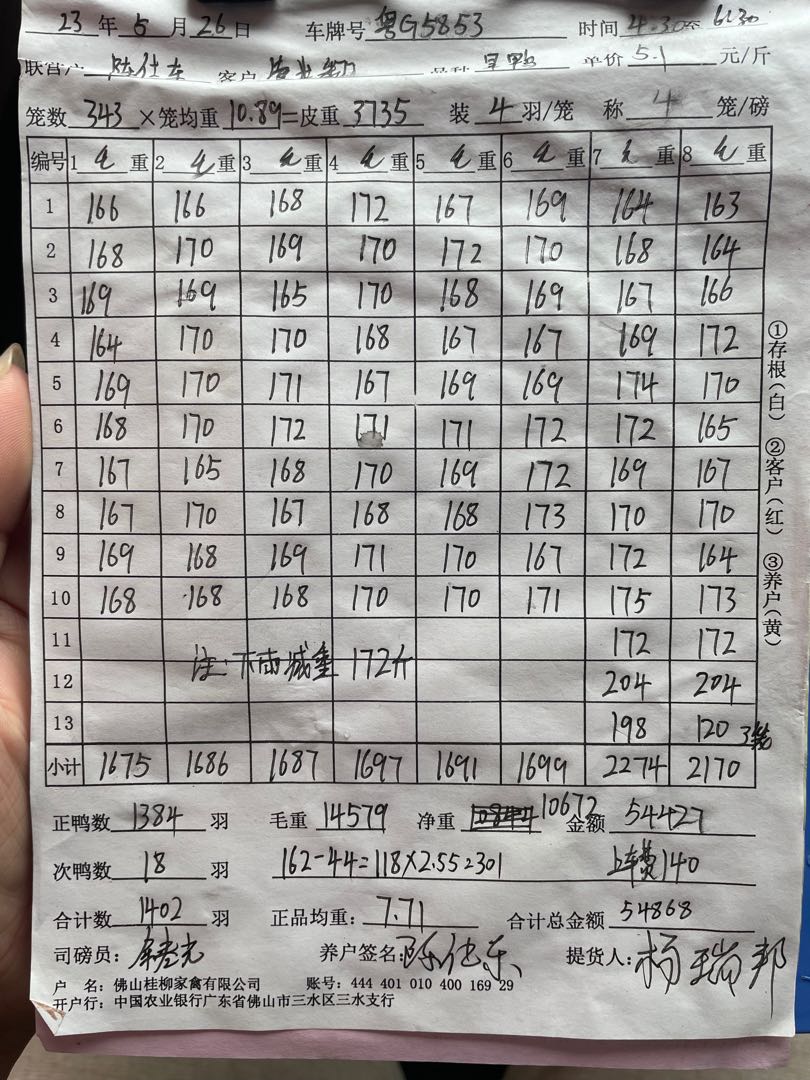 23 年 5 月 26 日 车牌号 粤G5853 时间 4.30至 6.30
联营户 陈仕东 客户 单价 5.1 元/斤
笼数 343 ×笼均重 10.89 =皮重 3735 装 4 羽/笼 称 4 笼/磅
编号 1 毛 重 2 毛 重 3 毛 重 4 毛 重 5 毛 重 6 毛 重 7 毛 重 8 毛 重
1 166 166 168 172 167 169 164 163
2 168 170 169 170 172 170 168 164
3 169 169 165 170 168 169 167 166
4 164 170 170 168 167 167 169 172
5 169 170 171 167 169 169 174 170
6 168 170 172 171 171 172 172 165
7 167 165 168 170 169 172 169 167
8 167 170 167 168 168 173 170 170
9 169 168 169 171 170 167 172 164
10 168 168 168 170 170 171 175 173
11 172 172
注:下雨减重 172斤
12 204 204
13 198 120 3笼
小计 1675 1686 1687 1697 1691 1699 2274 2170
正鸭数 1384 羽 毛重 14579 净重 10672 金额 54427
次鸭数 18 羽 162-44=118×2.55=301 上车费140
合计数 1402 羽 正品均重: 7.71 合计总金额 54868
司磅员: 养户签名: 陈仕东 提货人: 杨瑞邦
户 名: 佛山桂柳家禽有限公司 账号: 444 401 010 400 169 29
开户行: 中国农业银行广东省佛山市三水区三水支行
①存根(白) ②客户(红) ③养户(黄)